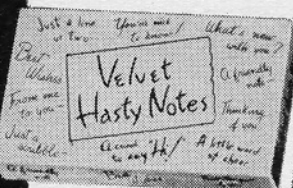 Just a line
or two-
You're nice
to know!
What's new
with you?
Best
Wishes
Velvet
Hasty Notes
A friendly
note-
From me
to you-
Thinking
of you
Just a
scribble-
A card "Hi"
to say
A little word
of cheer